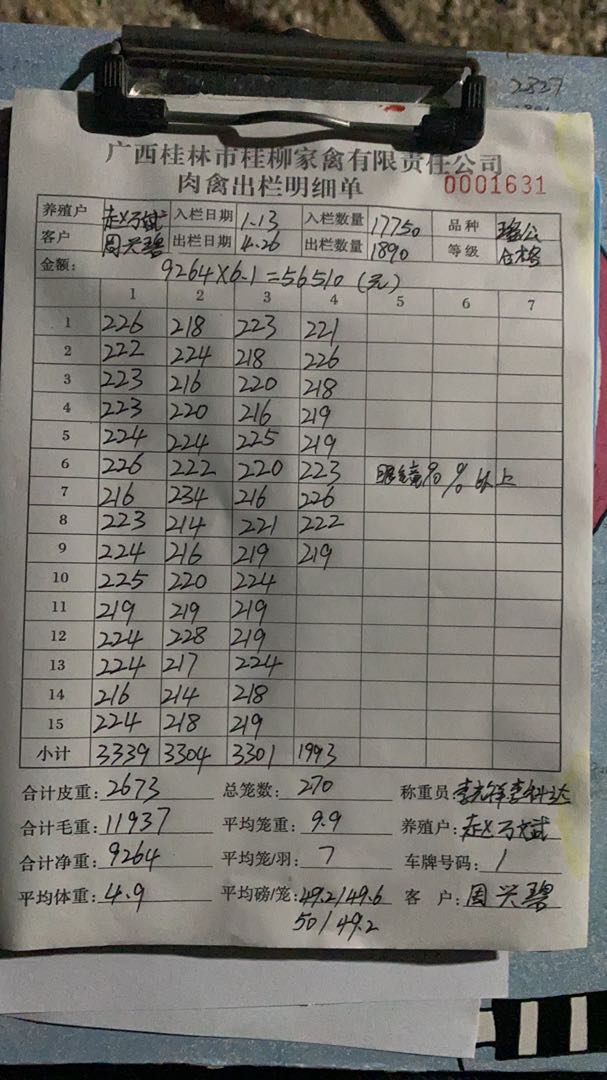 2827
广西桂林市桂柳家禽有限责任公司
肉禽出栏明细单 0001631
养殖户 赵万斌 入栏日期 1.13 入栏数量 17750 品种 瑶公
客户 周兴碧 出栏日期 4.26 出栏数量 1890 等级 合格
金额: 9264×6.1=56510(元)
1 2 3 4 5 6 7
1 226 218 223 221
2 222 224 218 226
3 223 216 220 218
4 223 220 216 219
5 224 224 225 219
6 226 222 220 223 眼睛90%以上
7 216 234 216 226
8 223 214 221 222
9 224 216 219 219
10 225 220 224
11 219 219 219
12 224 228 219
13 224 217 224
14 216 214 218
15 224 218 219
小计 3339 3304 3301 1993
合计皮重: 2673 总笼数: 270 称重员
合计毛重: 11937 平均笼重: 9.9 养殖户: 赵万斌
合计净重: 9264 平均笼/羽: 7 车牌号码: 1
平均体重: 4.9 平均磅/笼: 49.2/49.6 客户: 周兴碧
50/49.2